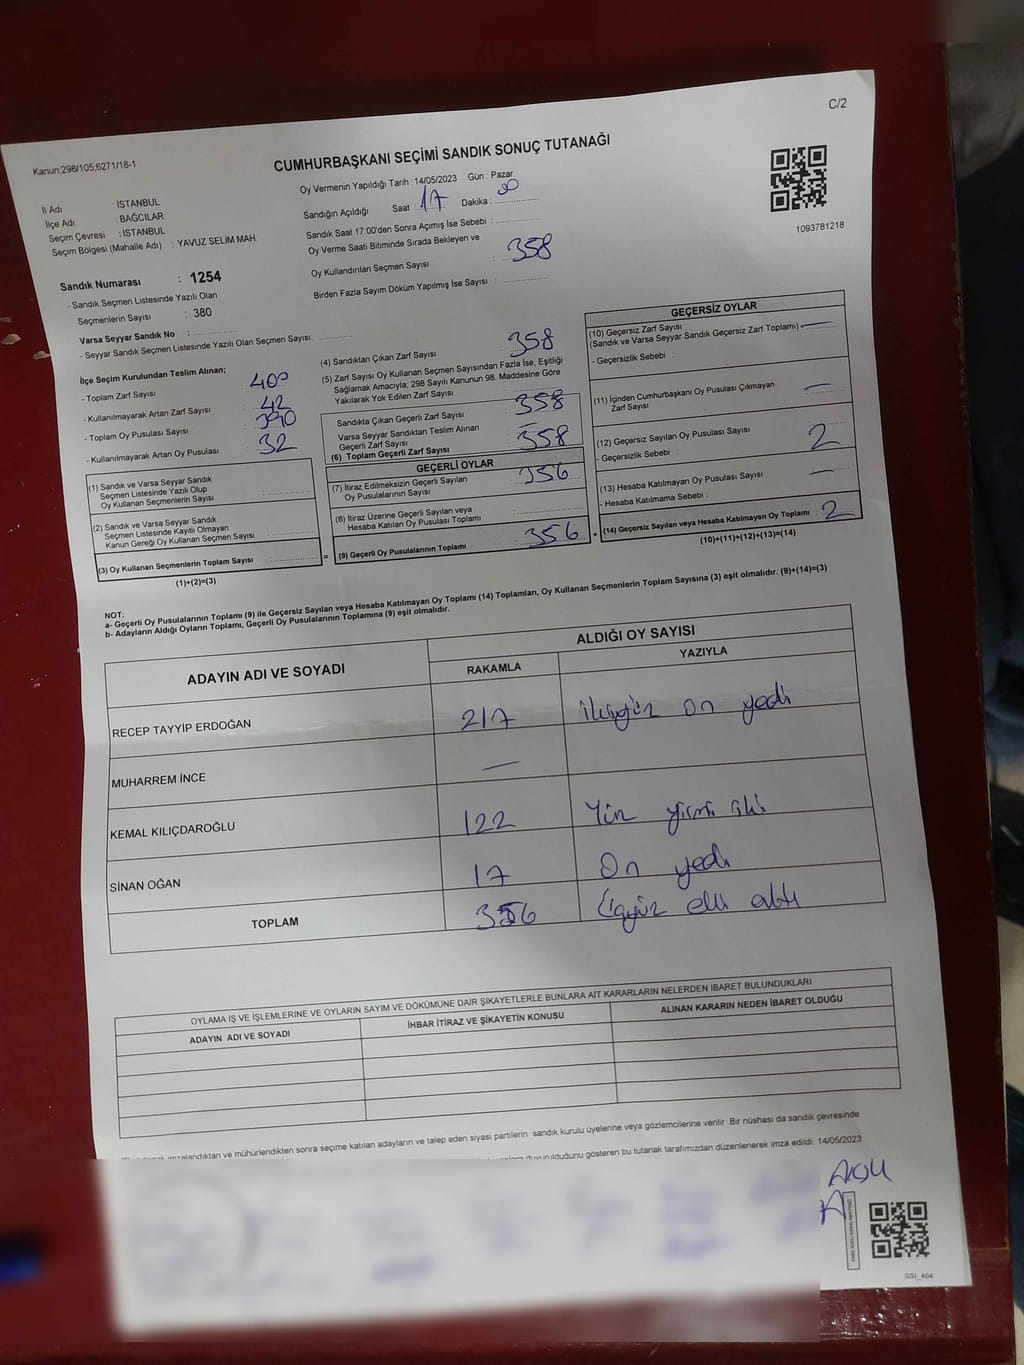 C/2
Kanun;298/105,6271/18-1
CUMHURBAŞKANI SEÇİMİ SANDIK SONUÇ TUTANAĞI
Oy Vermenin Yapıldığı Tarih : 14/05/2023 Gün : Pazar
İl Adı : İSTANBUL
İlçe Adı : BAĞCILAR
Seçim Çevresi : İSTANBUL
Seçim Bölgesi (Mahalle Adı) : YAVUZ SELİM MAH.
Sandığın Açıldığı Saat : 17 Dakika : 00
Sandık Saat 17:00'den Sonra Açımış İse Sebebi :
Oy Verme Saati Bitiminde Sırada Bekleyen ve
Oy Kullandırılan Seçmen Sayısı : 358
Birden Fazla Sayım Döküm Yapılmış İse Sayısı :
1093781218
Sandık Numarası : 1254
- Sandık Seçmen Listesinde Yazılı Olan
Seçmenlerin Sayısı : 380
Varsa Seyyar Sandık No :
- Seyyar Sandık Seçmen Listesinde Yazılı Olan Seçmen Sayısı:
İlçe Seçim Kurulundan Teslim Alınan;
- Toplam Zarf Sayısı : 400
- Kullanılmayarak Artan Zarf Sayısı : 42
- Toplam Oy Pusulası Sayısı : 390
- Kullanılmayarak Artan Oy Pusulası : 32
(1) Sandık ve Varsa Seyyar Sandık
Seçmen Listesinde Yazılı Olup
Oy Kullanan Seçmenlerin Sayısı :
(2) Sandık ve Varsa Seyyar Sandık
Seçmen Listesinde Kayıtlı Olmayan
Kanun Gereği Oy Kullanan Seçmen Sayısı :
(3) Oy Kullanan Seçmenlerin Toplam Sayısı :
(1)+(2)=(3)
=
(4) Sandıktan Çıkan Zarf Sayısı : 358
(5) Zarf Sayısı Oy Kullanan Seçmen Sayısından Fazla İse, Eşitliği
Sağlamak Amacıyla, 298 Sayılı Kanunun 98. Maddesine Göre
Yakılarak Yok Edilen Zarf Sayısı :
Sandıkta Çıkan Geçerli Zarf Sayısı : 358
Varsa Seyyar Sandıktan Teslim Alınan
Geçerli Zarf Sayısı
(6) Toplam Geçerli Zarf Sayısı : 358
GEÇERLİ OYLAR
(7) İtiraz Edilmeksizin Geçerli Sayılan
Oy Pusulalarının Sayısı : 356
(8) İtiraz Üzerine Geçerli Sayılan veya
Hesaba Katılan Oy Pusulası Toplamı :
(9) Geçerli Oy Pusulalarının Toplamı : 356
+
GEÇERSİZ OYLAR
(10) Geçersiz Zarf Sayısı
(Sandık ve Varsa Seyyar Sandık Geçersiz Zarf Toplamı) : —
- Geçersizlik Sebebi :
(11) İçinden Cumhurbaşkanı Oy Pusulası Çıkmayan
Zarf Sayısı : —
(12) Geçersiz Sayılan Oy Pusulası Sayısı : 2
- Geçersizlik Sebebi :
(13) Hesaba Katılmayan Oy Pusulası Sayısı : —
- Hesaba Katılmama Sebebi :
(14) Geçersiz Sayılan veya Hesaba Katılmayan Oy Toplamı : 2
(10)+(11)+(12)+(13)=(14)
NOT:
a- Geçerli Oy Pusulalarının Toplamı (9) ile Geçersiz Sayılan veya Hesaba Katılmayan Oy Toplamı (14) Toplamları, Oy Kullanan Seçmenlerin Toplam Sayısına (3) eşit olmalıdır. (9)+(14)=(3)
b- Adayların Aldığı Oyların Toplamı, Geçerli Oy Pusulalarının Toplamına (9) eşit olmalıdır.
ADAYIN ADI VE SOYADI
ALDIĞI OY SAYISI
RAKAMLA YAZIYLA
RECEP TAYYİP ERDOĞAN 217 ikiyüz on yedi
MUHARREM İNCE —
KEMAL KILIÇDAROĞLU 122 Yüz yirmi iki
SİNAN OĞAN 17 On yedi
TOPLAM 356 Üçyüz elli altı
OYLAMA İŞ VE İŞLEMLERİNE VE OYLARIN SAYIM VE DÖKÜMÜNE DAİR ŞİKAYETLERLE BUNLARA AİT KARARLARIN NELERDEN İBARET BULUNDUKLARI
ADAYIN ADI VE SOYADI
İHBAR İTİRAZ VE ŞİKAYETİN KONUSU
ALINAN KARARIN NEDEN İBARET OLDUĞU
tutanak imzalandıktan ve mühürlendikten sonra seçime katılan adayların ve talep eden siyasi partilerin sandık kurulu üyelerine veya gözlemcilerine verilir. Bir nüshası da sandık çevresinde
duyurulduğunu gösteren bu tutanak tarafımızdan düzenlenerek imza edildi. 14/05/2023
GSI_404